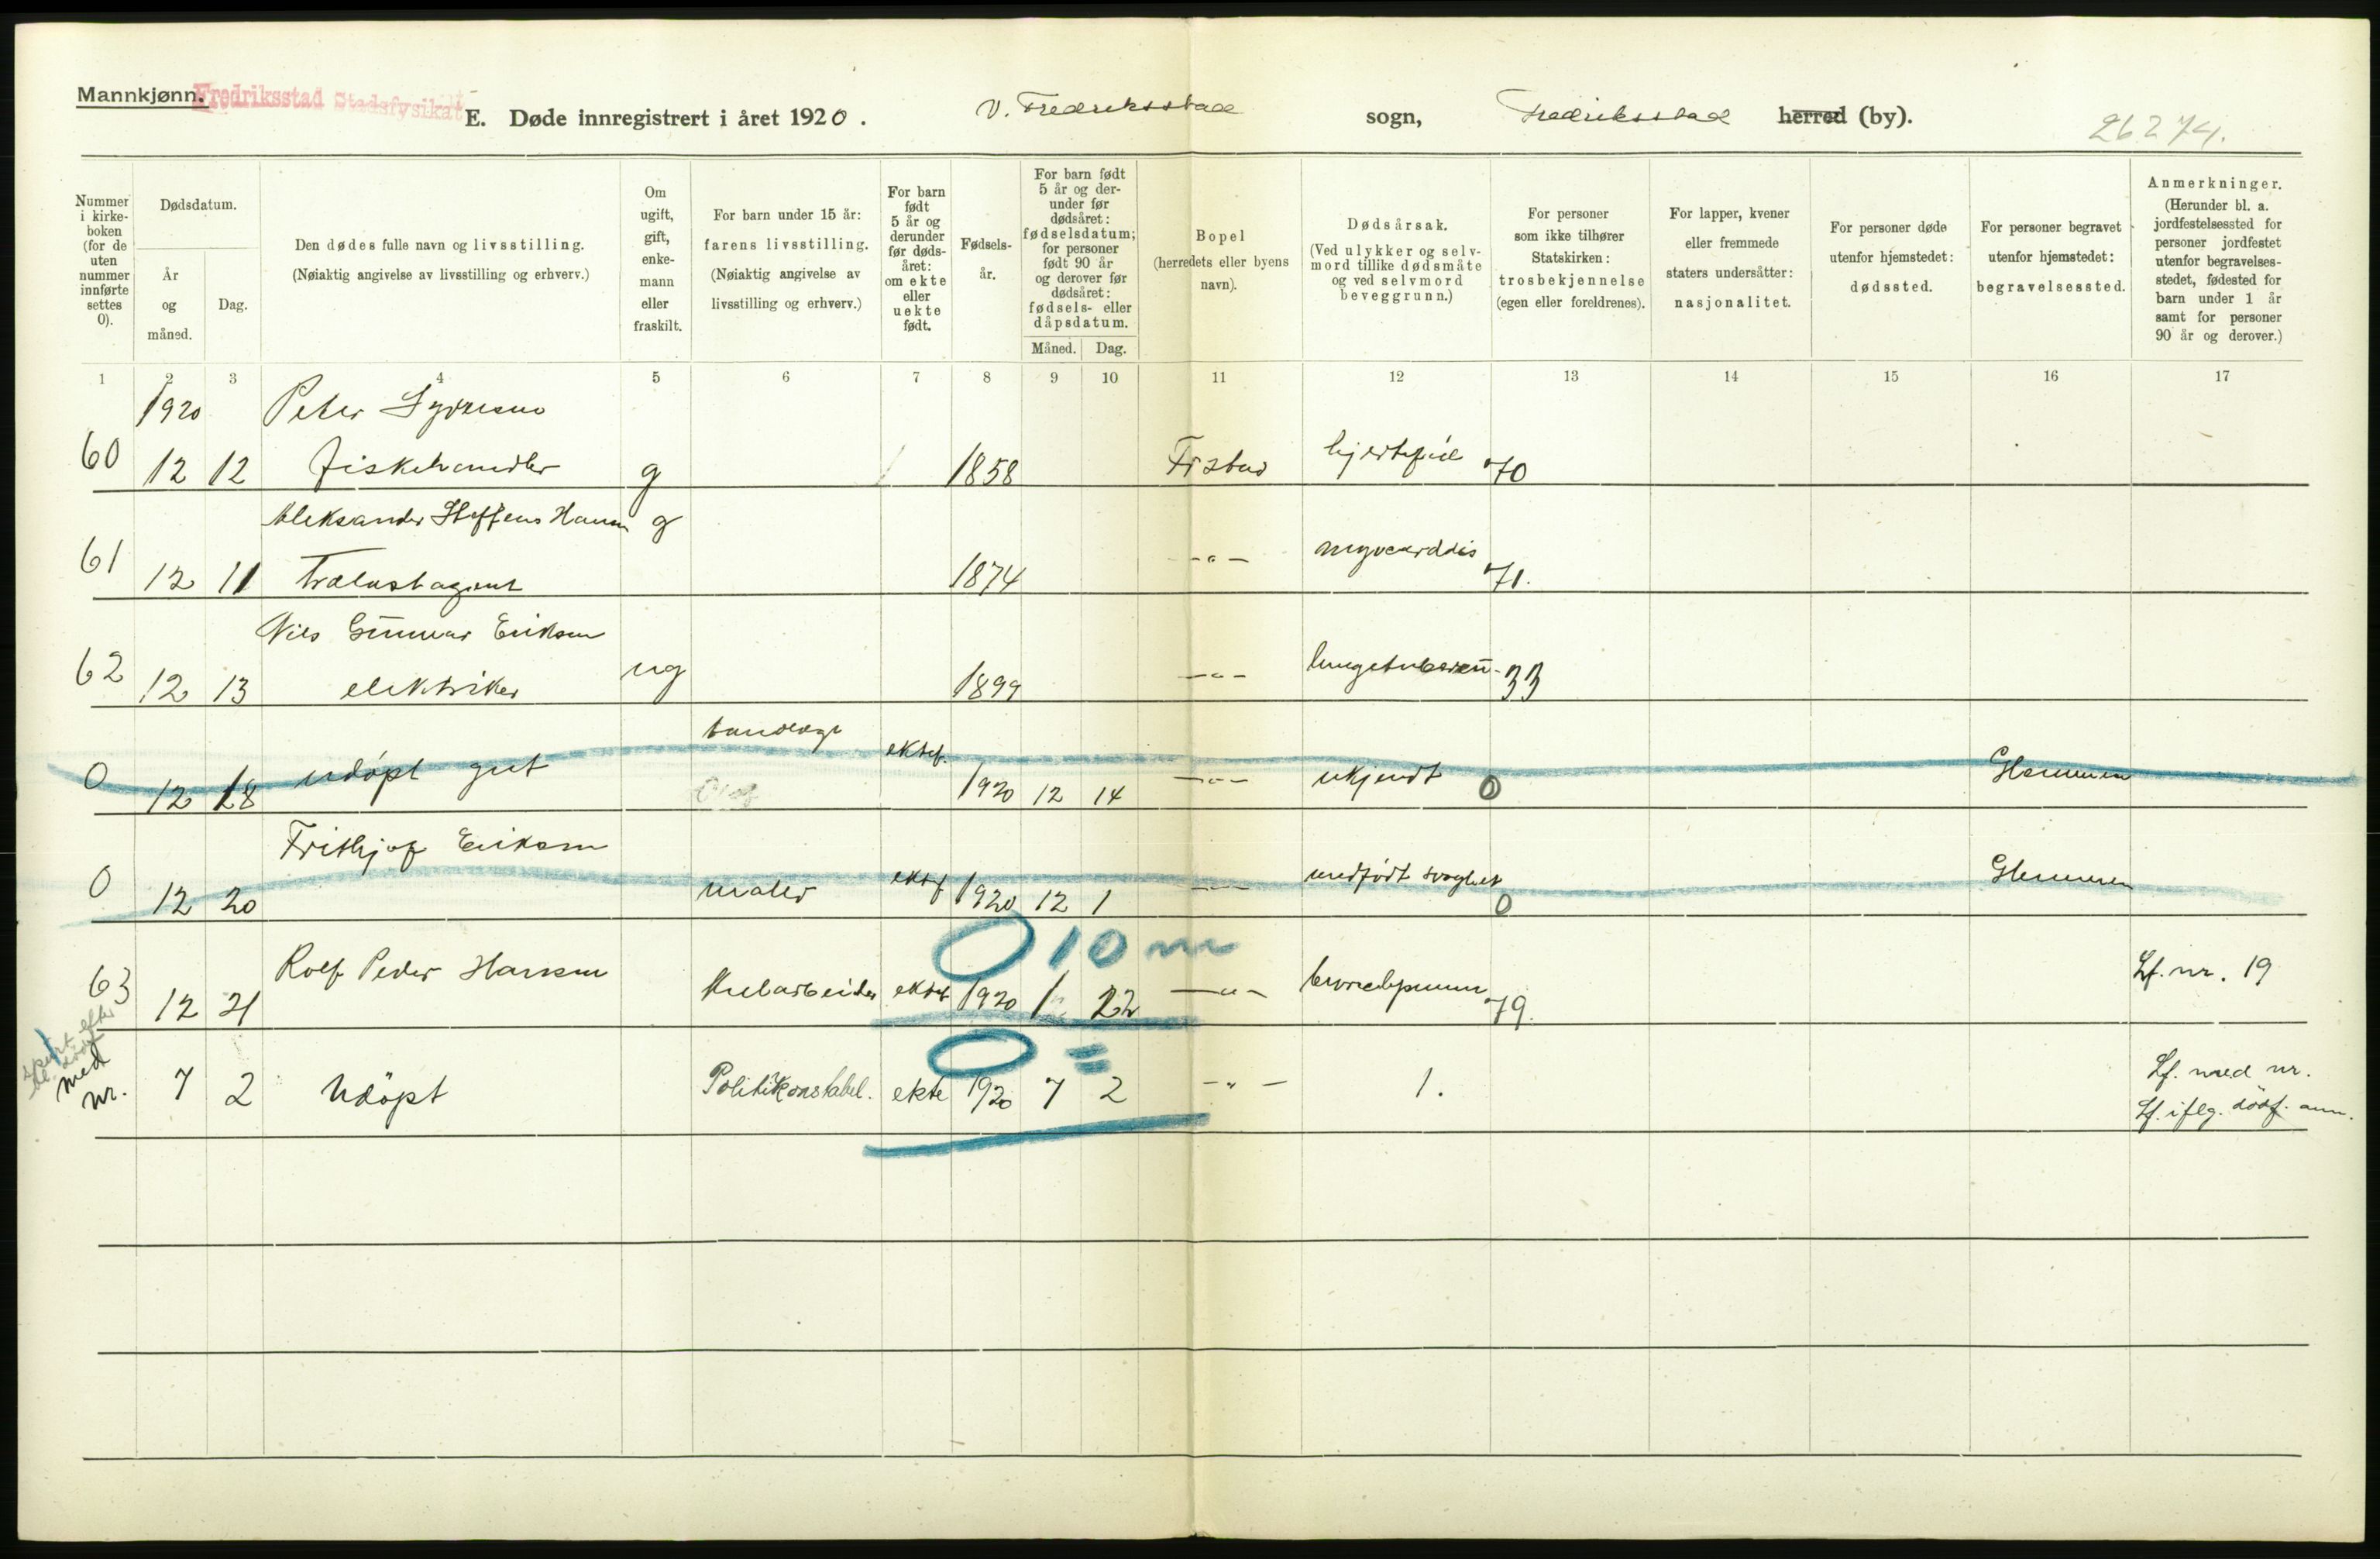 Mannkjønn.
Fredriksstad Stadsfysikat
E. Døde innregistrert i året 1920.
V. Fredriksstad sogn, Fredriksstad herred (by).
26274.
Nummer i kirke-boken (for de uten nummer innførte settes 0).
Dødsdatum.
År og måned.
Dag.
Den dødes fulle navn og livsstilling.
(Nøiaktig angivelse av livsstilling og erhverv.)
Om ugift, gift, enke-mann eller fraskilt.
For barn under 15 år:
farens livsstilling.
(Nøiaktig angivelse av livsstilling og erhverv.)
For barn født 5 år og derunder før døds-året: om ekte eller uekte født.
Fødsels-år.
For barn født 5 år og der-under før dødsåret: fødselsdatum; for personer født 90 år og derover før dødsåret: fødsels- eller dåpsdatum.
Måned. Dag.
Bopel
(herredets eller byens navn).
Dødsårsak.
(Ved ulykker og selv-mord tillike dødsmåte og ved selvmord beveggrunn.)
For personer som ikke tilhører Statskirken: trosbekjennelse (egen eller foreldrenes).
For lapper, kvener eller fremmede staters undersåtter: nasjonalitet.
For personer døde utenfor hjemstedet: dødssted.
For personer begravet utenfor hjemstedet: begravelsessted.
Anmerkninger.
(Herunder bl. a. jordfestelsessted for personer jordfestet utenfor begravelses-stedet, fødested for barn under 1 år samt for personer 90 år og derover.)
1 2 3 4 5 6 7 8 9 10 11 12 13 14 15 16 17
1920 Peter
60 12 12 fiskehandler g 1858 Frstad hjertefeil 70
Aleksander Steffens Hansen g
61 12 11 Trælastagent 1874 -"- myocarditis 71.
Nils Gunnar Eriksen
62 12 13 elektriker ug 1899 -"- lungetuberku- 33
0 12 18 udöpt gut ektef. 1920 12 14 -"- ukjendt 0 Glemmen
Frithjof Eriksen
0 12 20 maler ektef 1920 12 1 -"- medfödt svaghet 0 Glemmen
0 10 m
Rolf Peder Hansen
63 12 21 ektef 1920 1 22 -"- 79. Lf. nr. 19
0 =
med nr. 7 2 Udöpt Politikonstabel. ekte 1920 7 2 -"- 1. Lf. med nr.
Lf. iflg. dödf. anm.